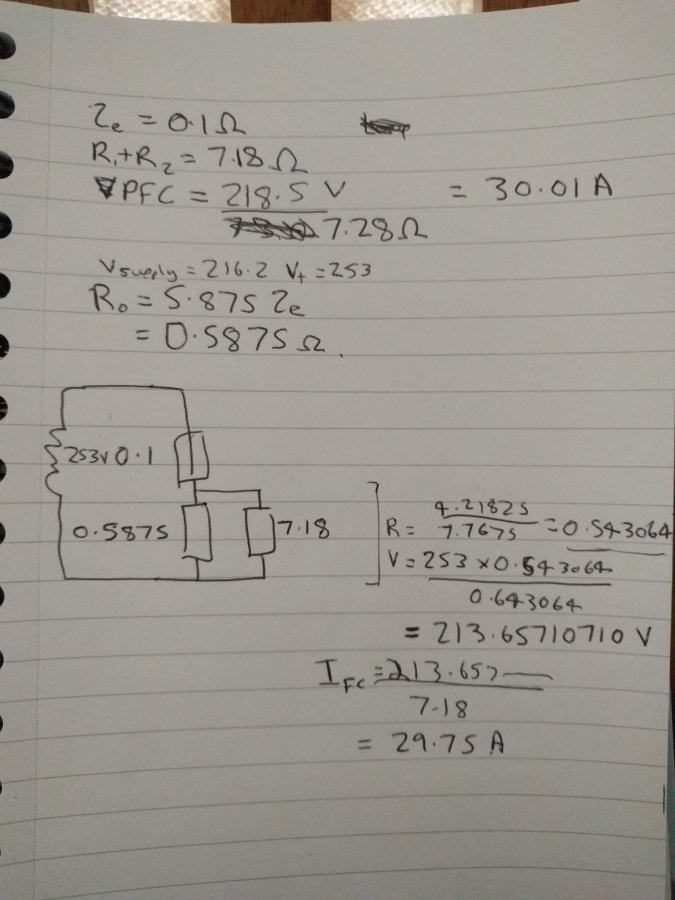 Ze = 0.1Ω
R1+R2 = 7.18 Ω
PFC = 218.5 V = 30.01 A
7.28Ω
Vsupply = 216.2 Vt = 253
Ro = 5.875 Ze
= 0.5875 Ω.
253V 0.1
0.5875
7.18
R = 4.21825 = 0.543064
7.7675
V = 253 × 0.543064
0.643064
= 213.65710710 V
IFC = 213.657
7.18
= 29.75 A